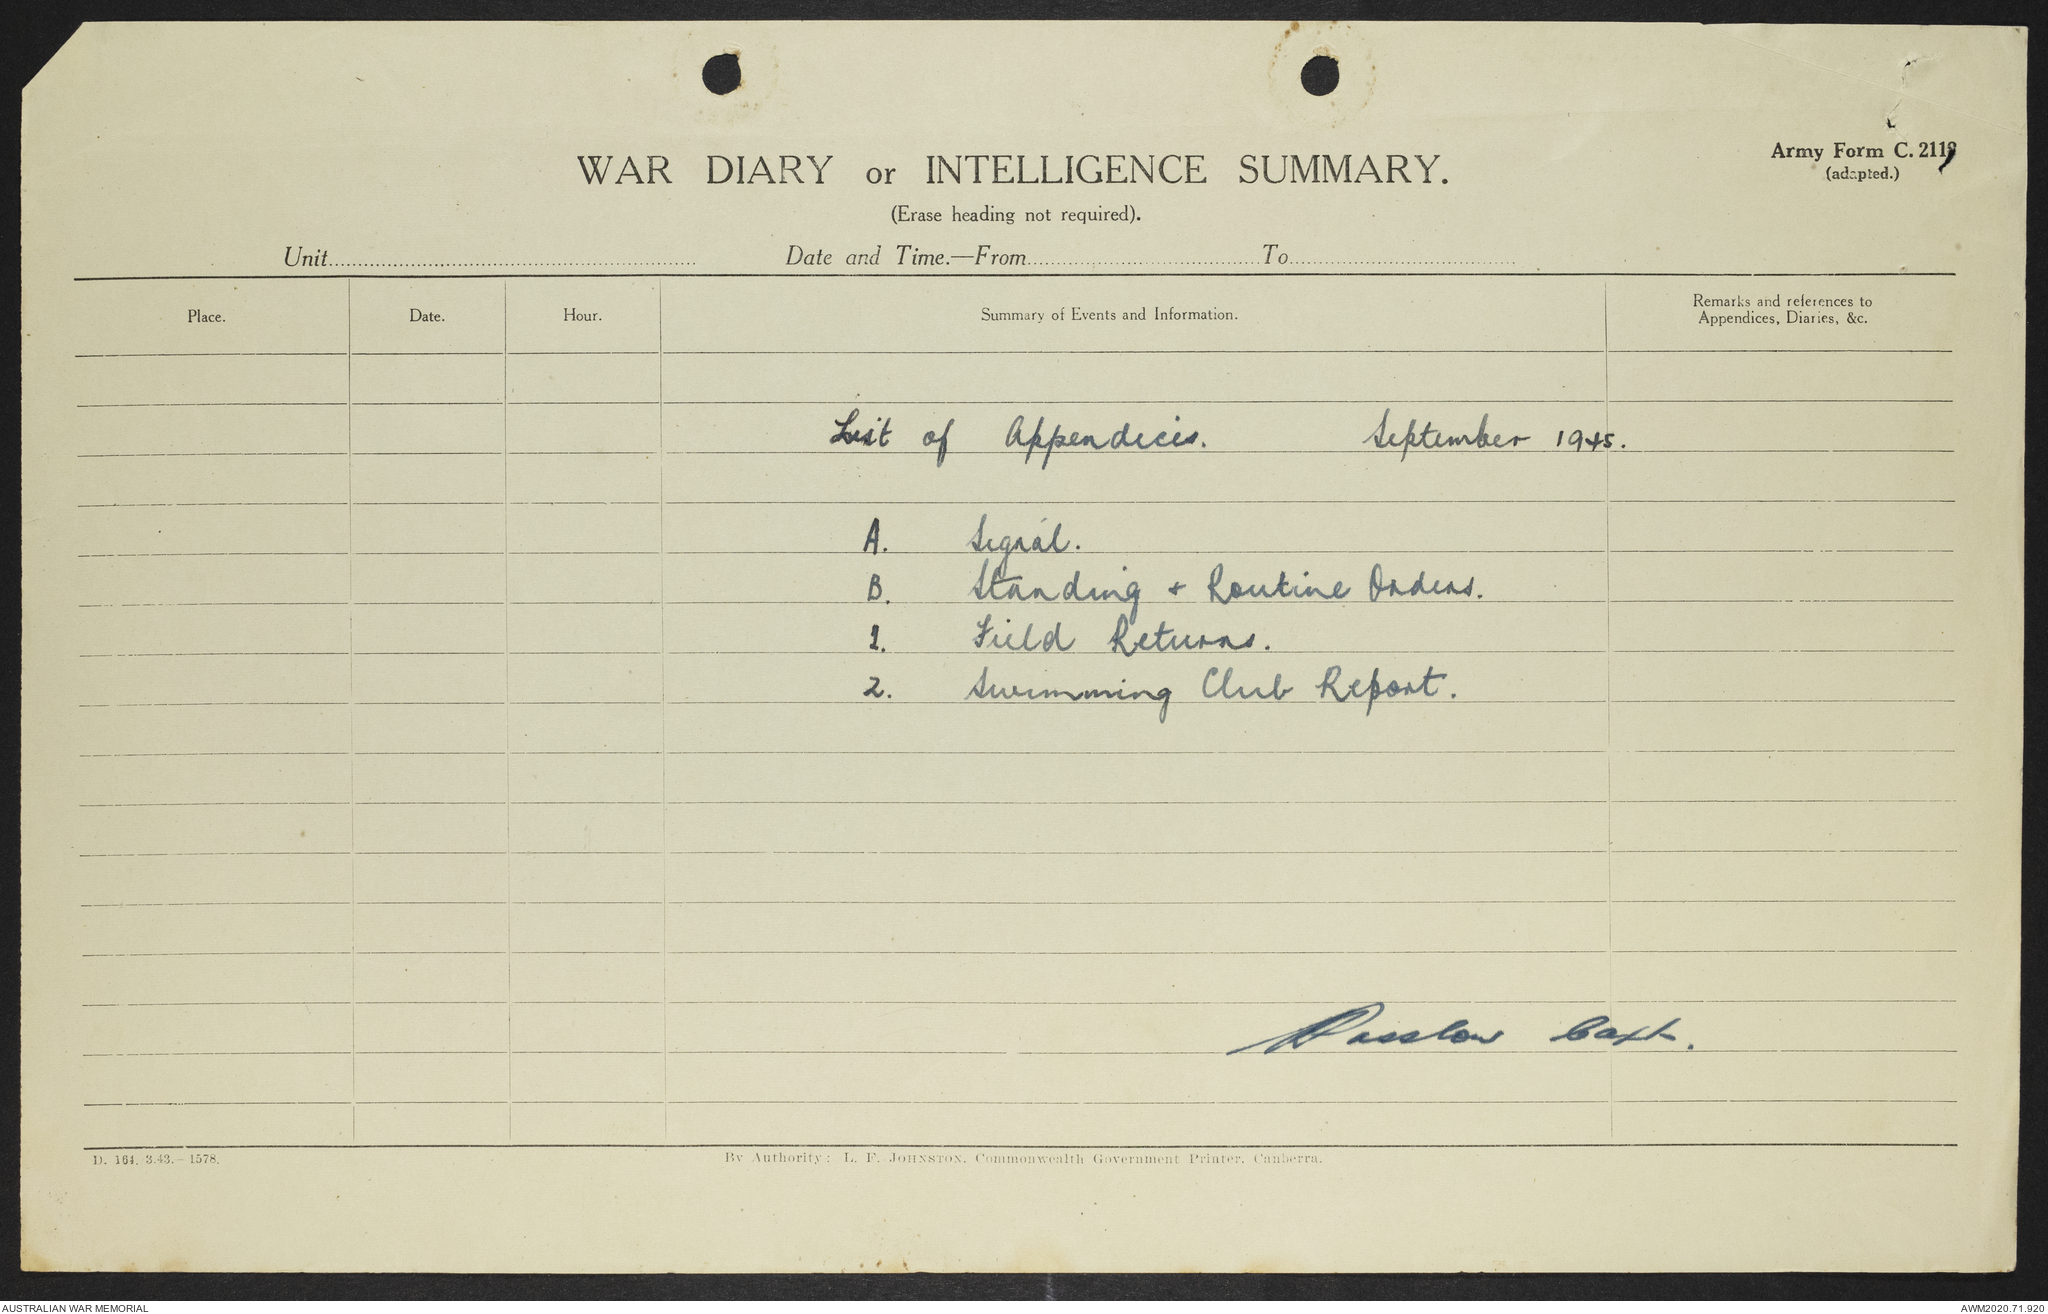 WAR DIARY or INTELLIGENCE SUMMARY.
Army Form C. 2119
(adapted.)
(Erase heading not required).
Unit.......... Date and Time.—From.......... To..........
Place. Date. Hour. Summary of Events and Information. Remarks and references to Appendices, Diaries, &c.
List of Appendices. September 1945.
A. Signal.
B. Standing + Routine Orders.
1. Field Returns.
2. Swimming Club Report.
Capt.
D. 164. 3.43.—1578. By Authority: L. F. JOHNSTON, Commonwealth Government Printer, Canberra.
AUSTRALIAN WAR MEMORIAL AWM2020.71.920